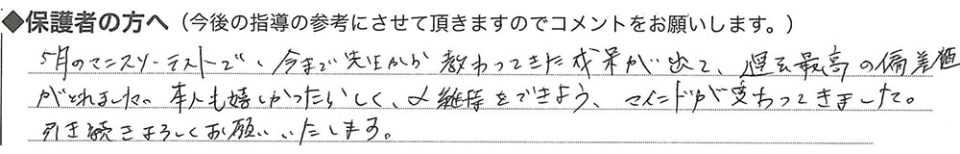 ◆保護者の方へ(今後の指導の参考にさせて頂きますのでコメントをお願いします。)
5月のマンスリーテストで、今まで先生から教わってきた成果が出て、過去最高の偏差値
がとれました。本人も嬉しかったらしく、〆継続をできよう、マインドが変わってきました。
引き続きよろしくお願いいたします。